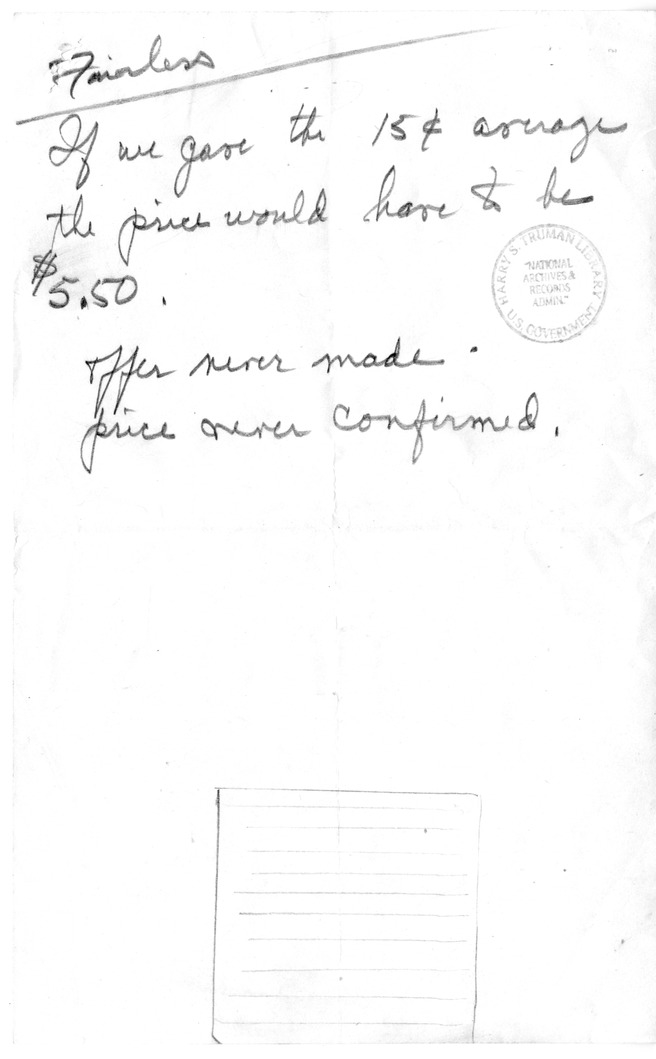 Fairless
If we gave the 15¢ average
the price would have to be
$5.50.
offer never made.
price never confirmed.
HARRY S. TRUMAN LIBRARY
"NATIONAL
ARCHIVES &
RECORDS
ADMIN."
U.S. GOVERNMENT